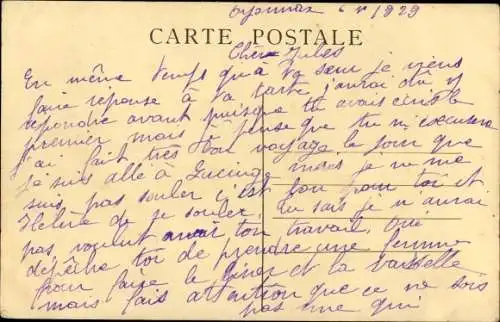 Oyonnax 6 x 1929
CARTE POSTALE
Chère Jules
En même temps qu'à ta sœur je viens
faire réponse à ta carte j'aurai dû y
repondre avant puisque tu avais écris le
premier mais je pense que tu m'excusera
j'ai fait très bon voyage le jour que
je suis allé à Lucinge mais je ne me
suis pas souler c'est bon pour toi et
Helène de je souler, tu sais je n'aurai
pas voulut avoir ton travail,
dépêche toi de prendre une femme
pour faire le diner et la vaisselle
mais fais attention que ce ne sois
pas une qui